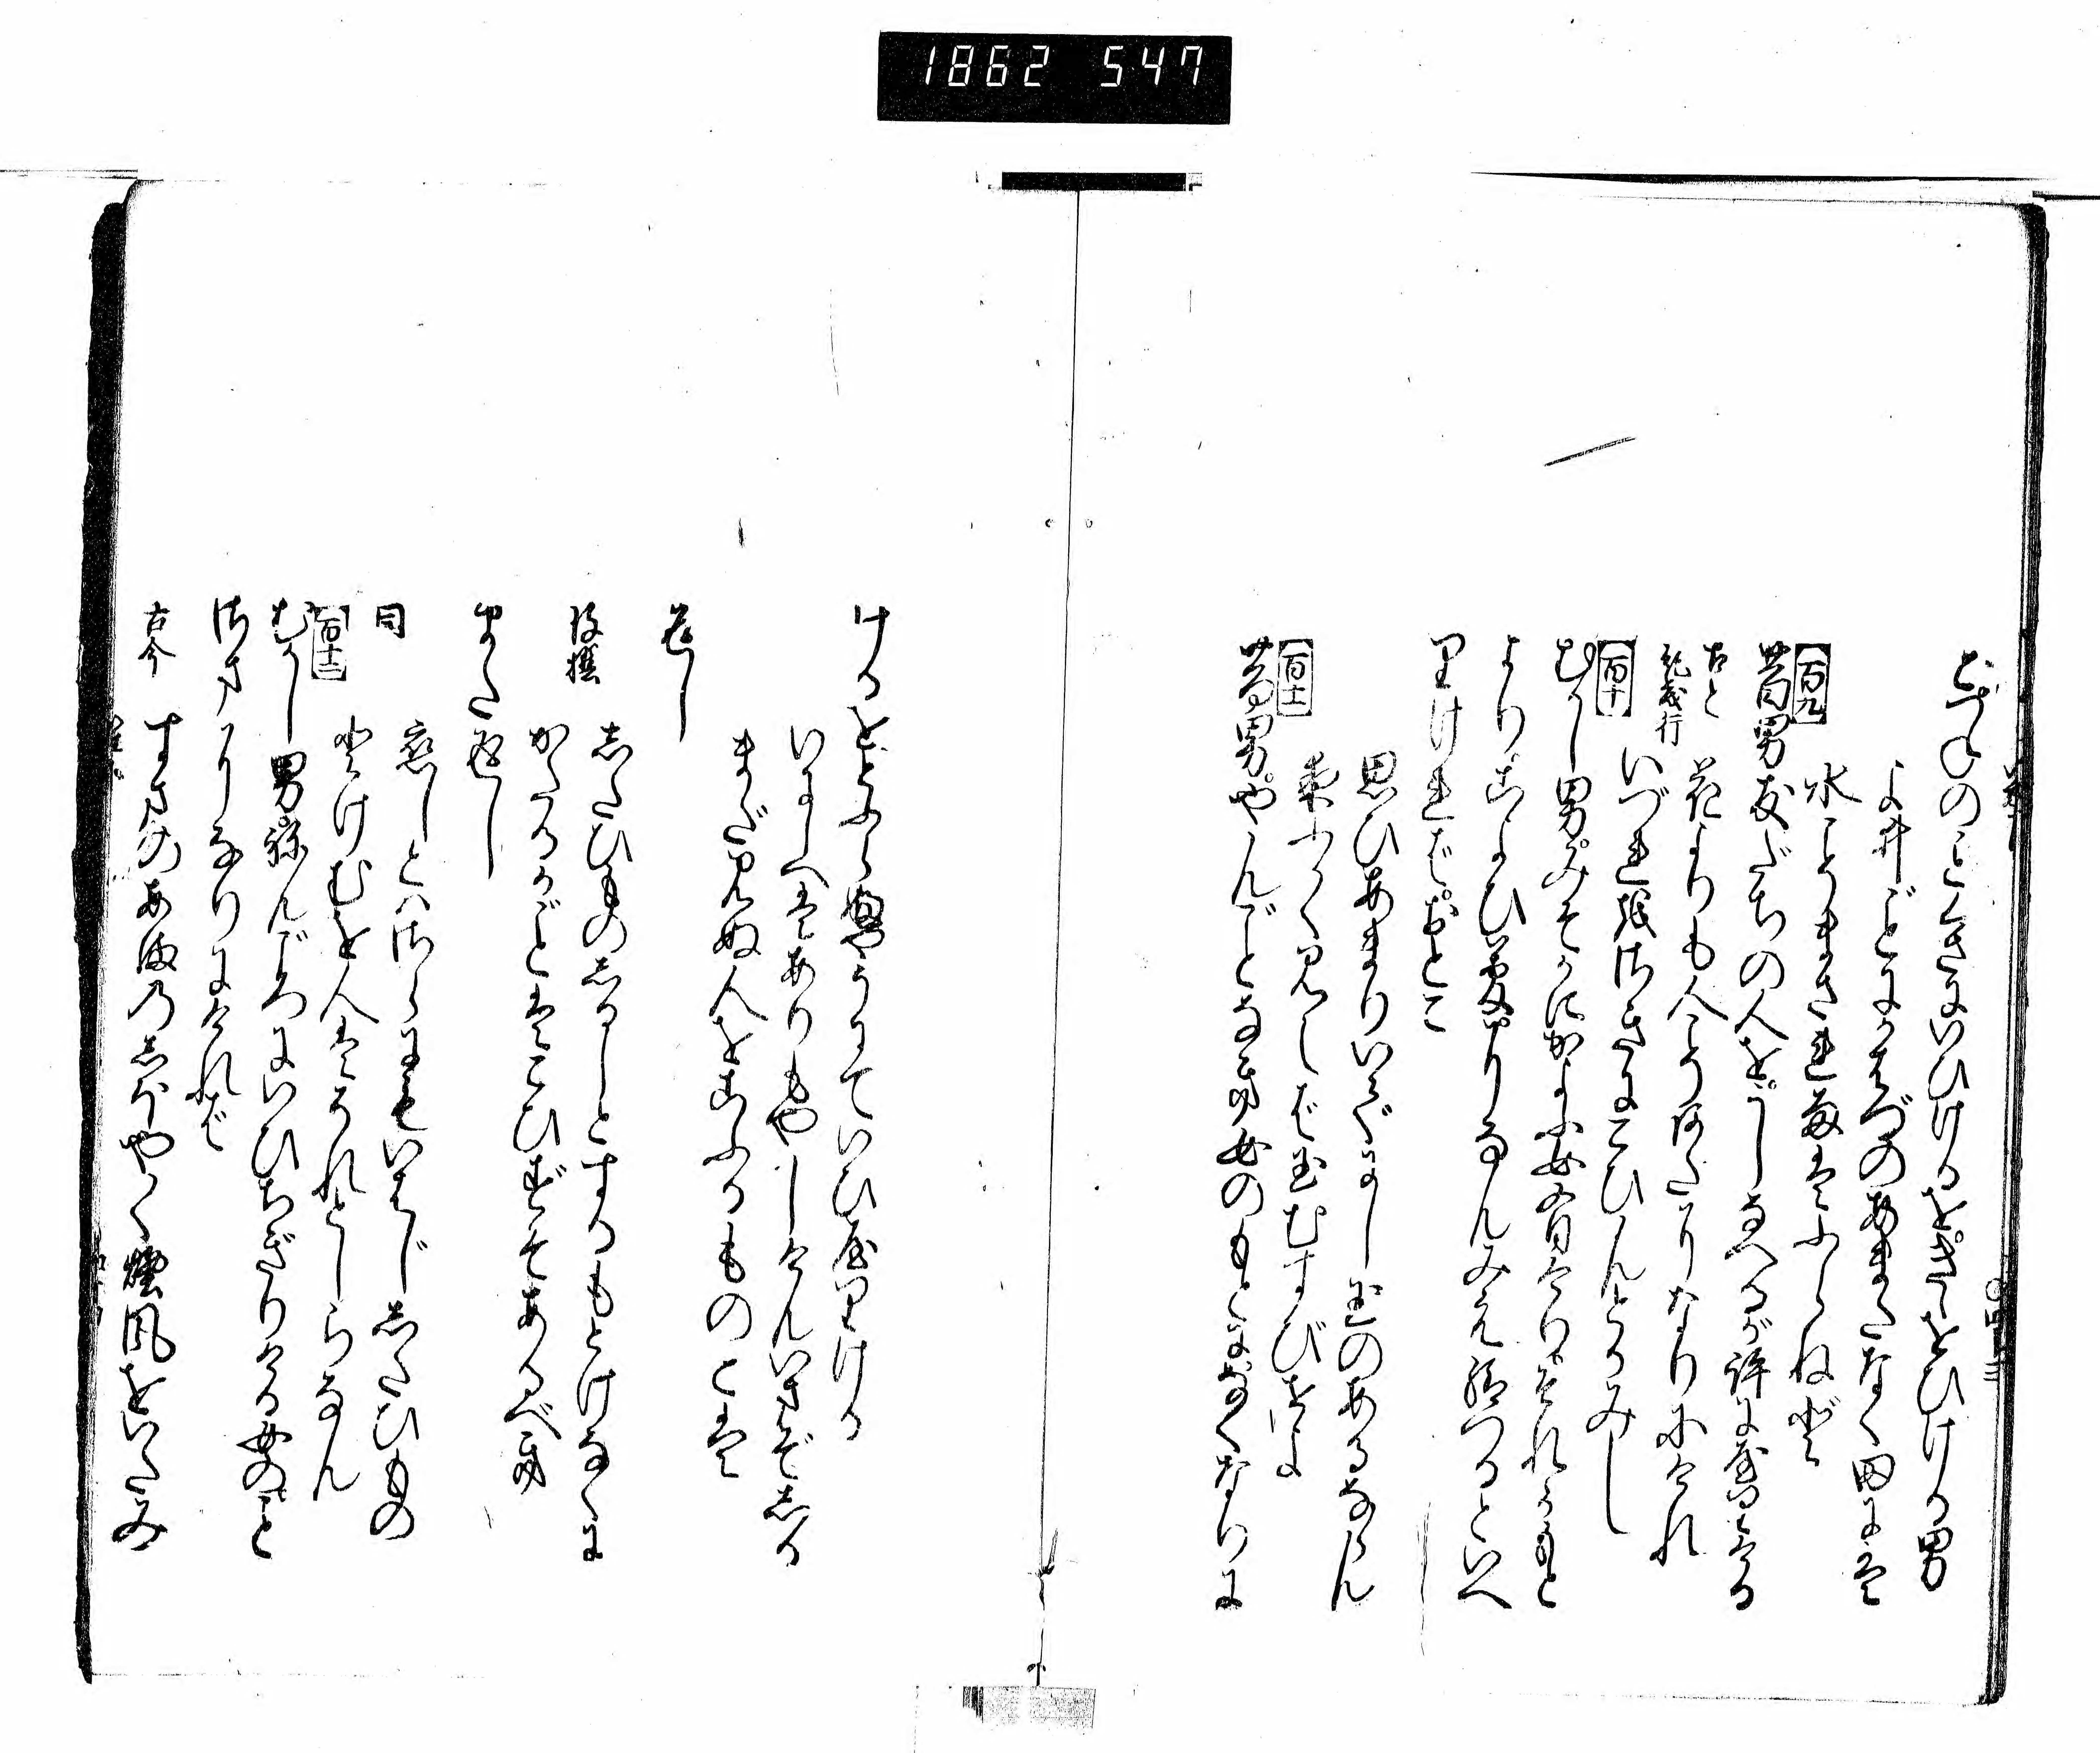 1862 547
とつねのことくさにいひけるをきゝをひける男
よ井ごとにかはづのあまたなく田には
水こそまされ雨はふらねど
百九
昔男友だちの人をうしなへるが許にやりける
古今
紀茂行
花よりも人こそあだになりにけれ
いづれをさきにこひんとかみし
百十
むかし男みそかにかよふ女有けりそれがもと
よりこよひ夢になんみえ給つるといへ
りければおとこ
思ひあまりいでにし玉のあるならん
夜ふかく見えば玉むすびせよ
百十一
昔男やんごとなき女のもとになくなりに
けるをとふらふやうにていひやりける
いにしへはありもやしけんいまぞしる
まだ見ぬ人をこふるものとは
返し
後撰
したひものしるしとするもとけなくに
かたるがごとはこひずぞあるべき
また返し
同
恋しとはさらにもいはじしたひもの
とけむを人はそれとしらなん
百十二
むかし男ねんごろにいひちぎりける女のこと
さまになりにければ
古今
すまのあまのしほやく煙風をいたみ